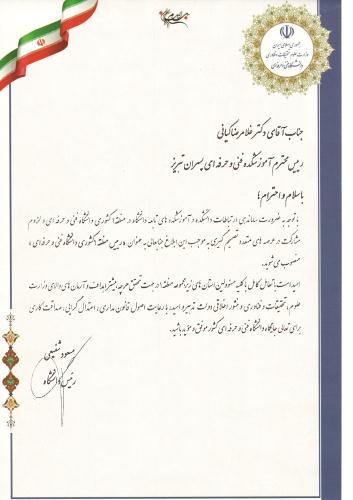 جمهوری اسلامی ایران
وزارت علوم، تحقیقات و فناوری
دانشگاه فنی و حرفه‌ای
جناب آقای دکتر غلامرضا کیانی
رییس محترم آموزشکده فنی و حرفه ای پسران تبریز
با سلام و احترام؛
با توجه به ضرورت ساماندهی ارتباطات دانشکده و آموزشکده های تابعه دانشگاه در منطقه ۱ کشوری دانشگاه فنی و حرفه ای و لزوم
مشارکت در عرصه های متعدد تصمیم گیری به موجب این ابلاغ جنابعالی به عنوان «دبیر منطقه ۱ کشوری دانشگاه فنی و حرفه ای»
منصوب می شوید.
امید است با تعامل کامل با کلیه مسئولین استان های زیرمجموعه منطقه ۱ در جهت تحقق هرچه بیشتر اهداف و آرمان های والای وزارت
علوم، تحقیقات و فناوری و منشور اخلاقی دولت تدبیر و امید، با رعایت اصول قانون مداری، اعتدال گرایی، صداقت کاری
برای تعالی جایگاه دانشگاه فنی و حرفه ای کشور موفق و مؤید باشید.
مسعود شفیعی
رئیس دانشگاه